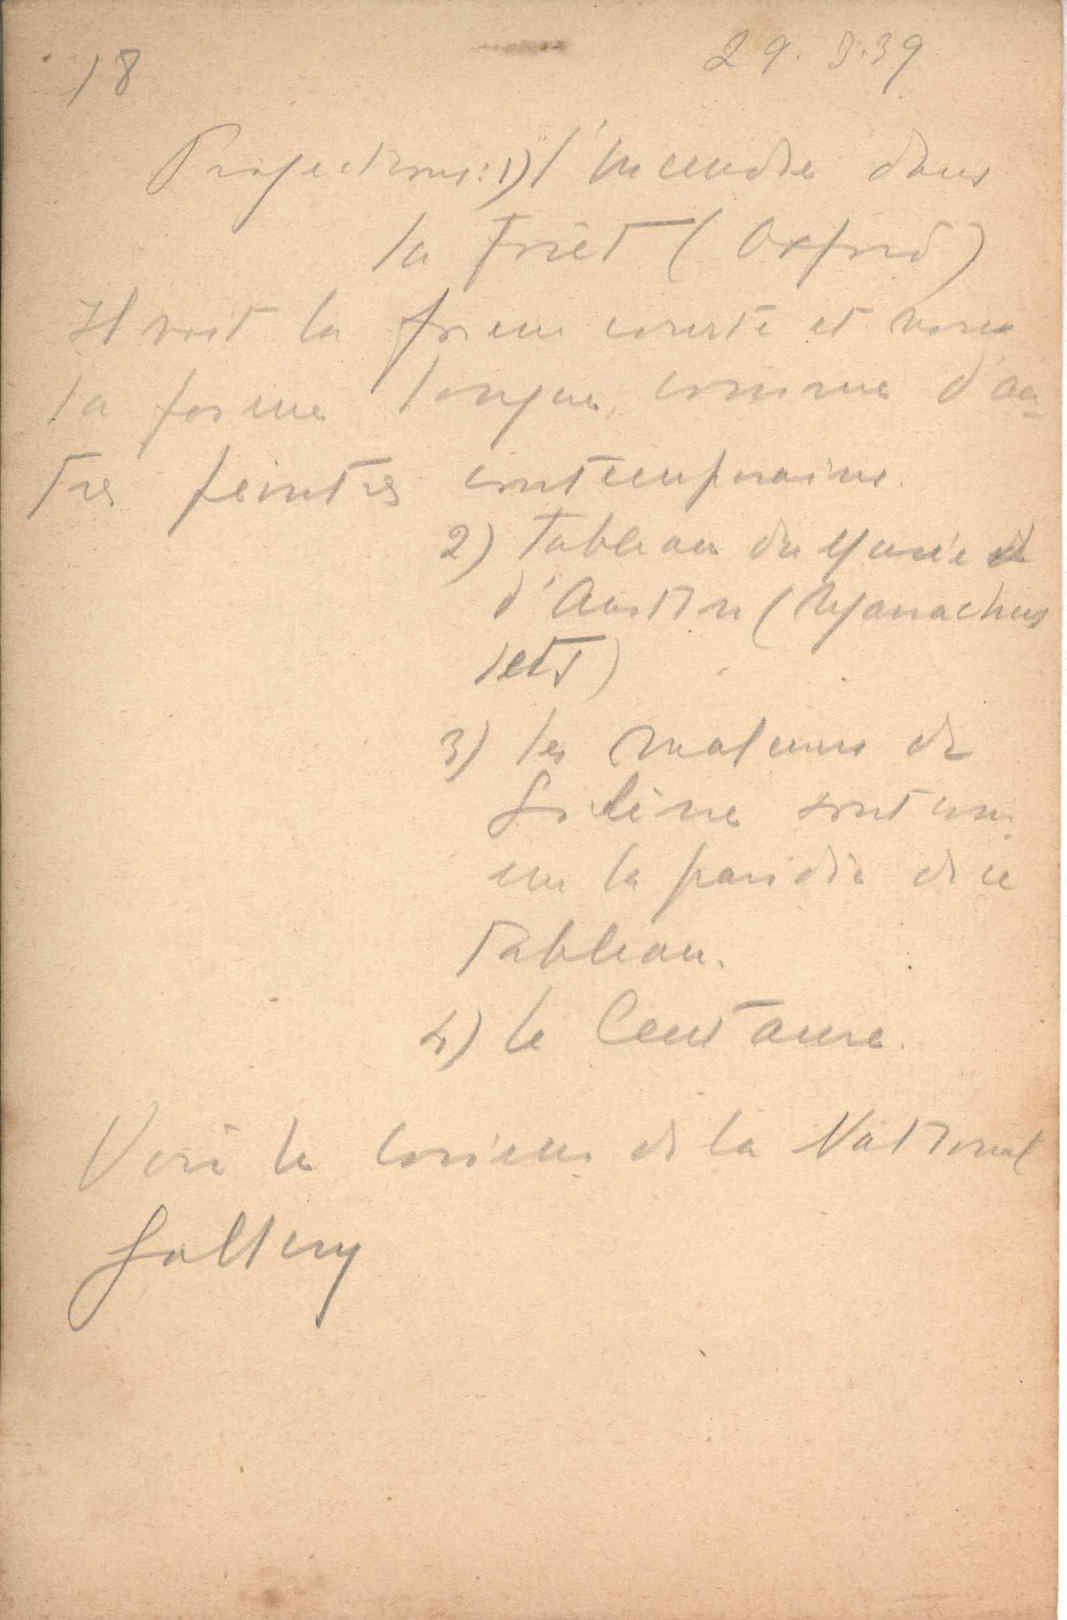 18
29. 3.39
Projections: 1) l'Incendie dans
la forêt (Oxford)
Il voit la forme courte et non
la forme longue, comme d'au-
tres peintres contemporains.
2) Tableau du Musée
d'Austin (Massachus
setts)
3) les malheurs de
Silène sont com
me la parodie de ce
tableau.
4) le Centaure.
Voir le Cosimo de la National
Gallery